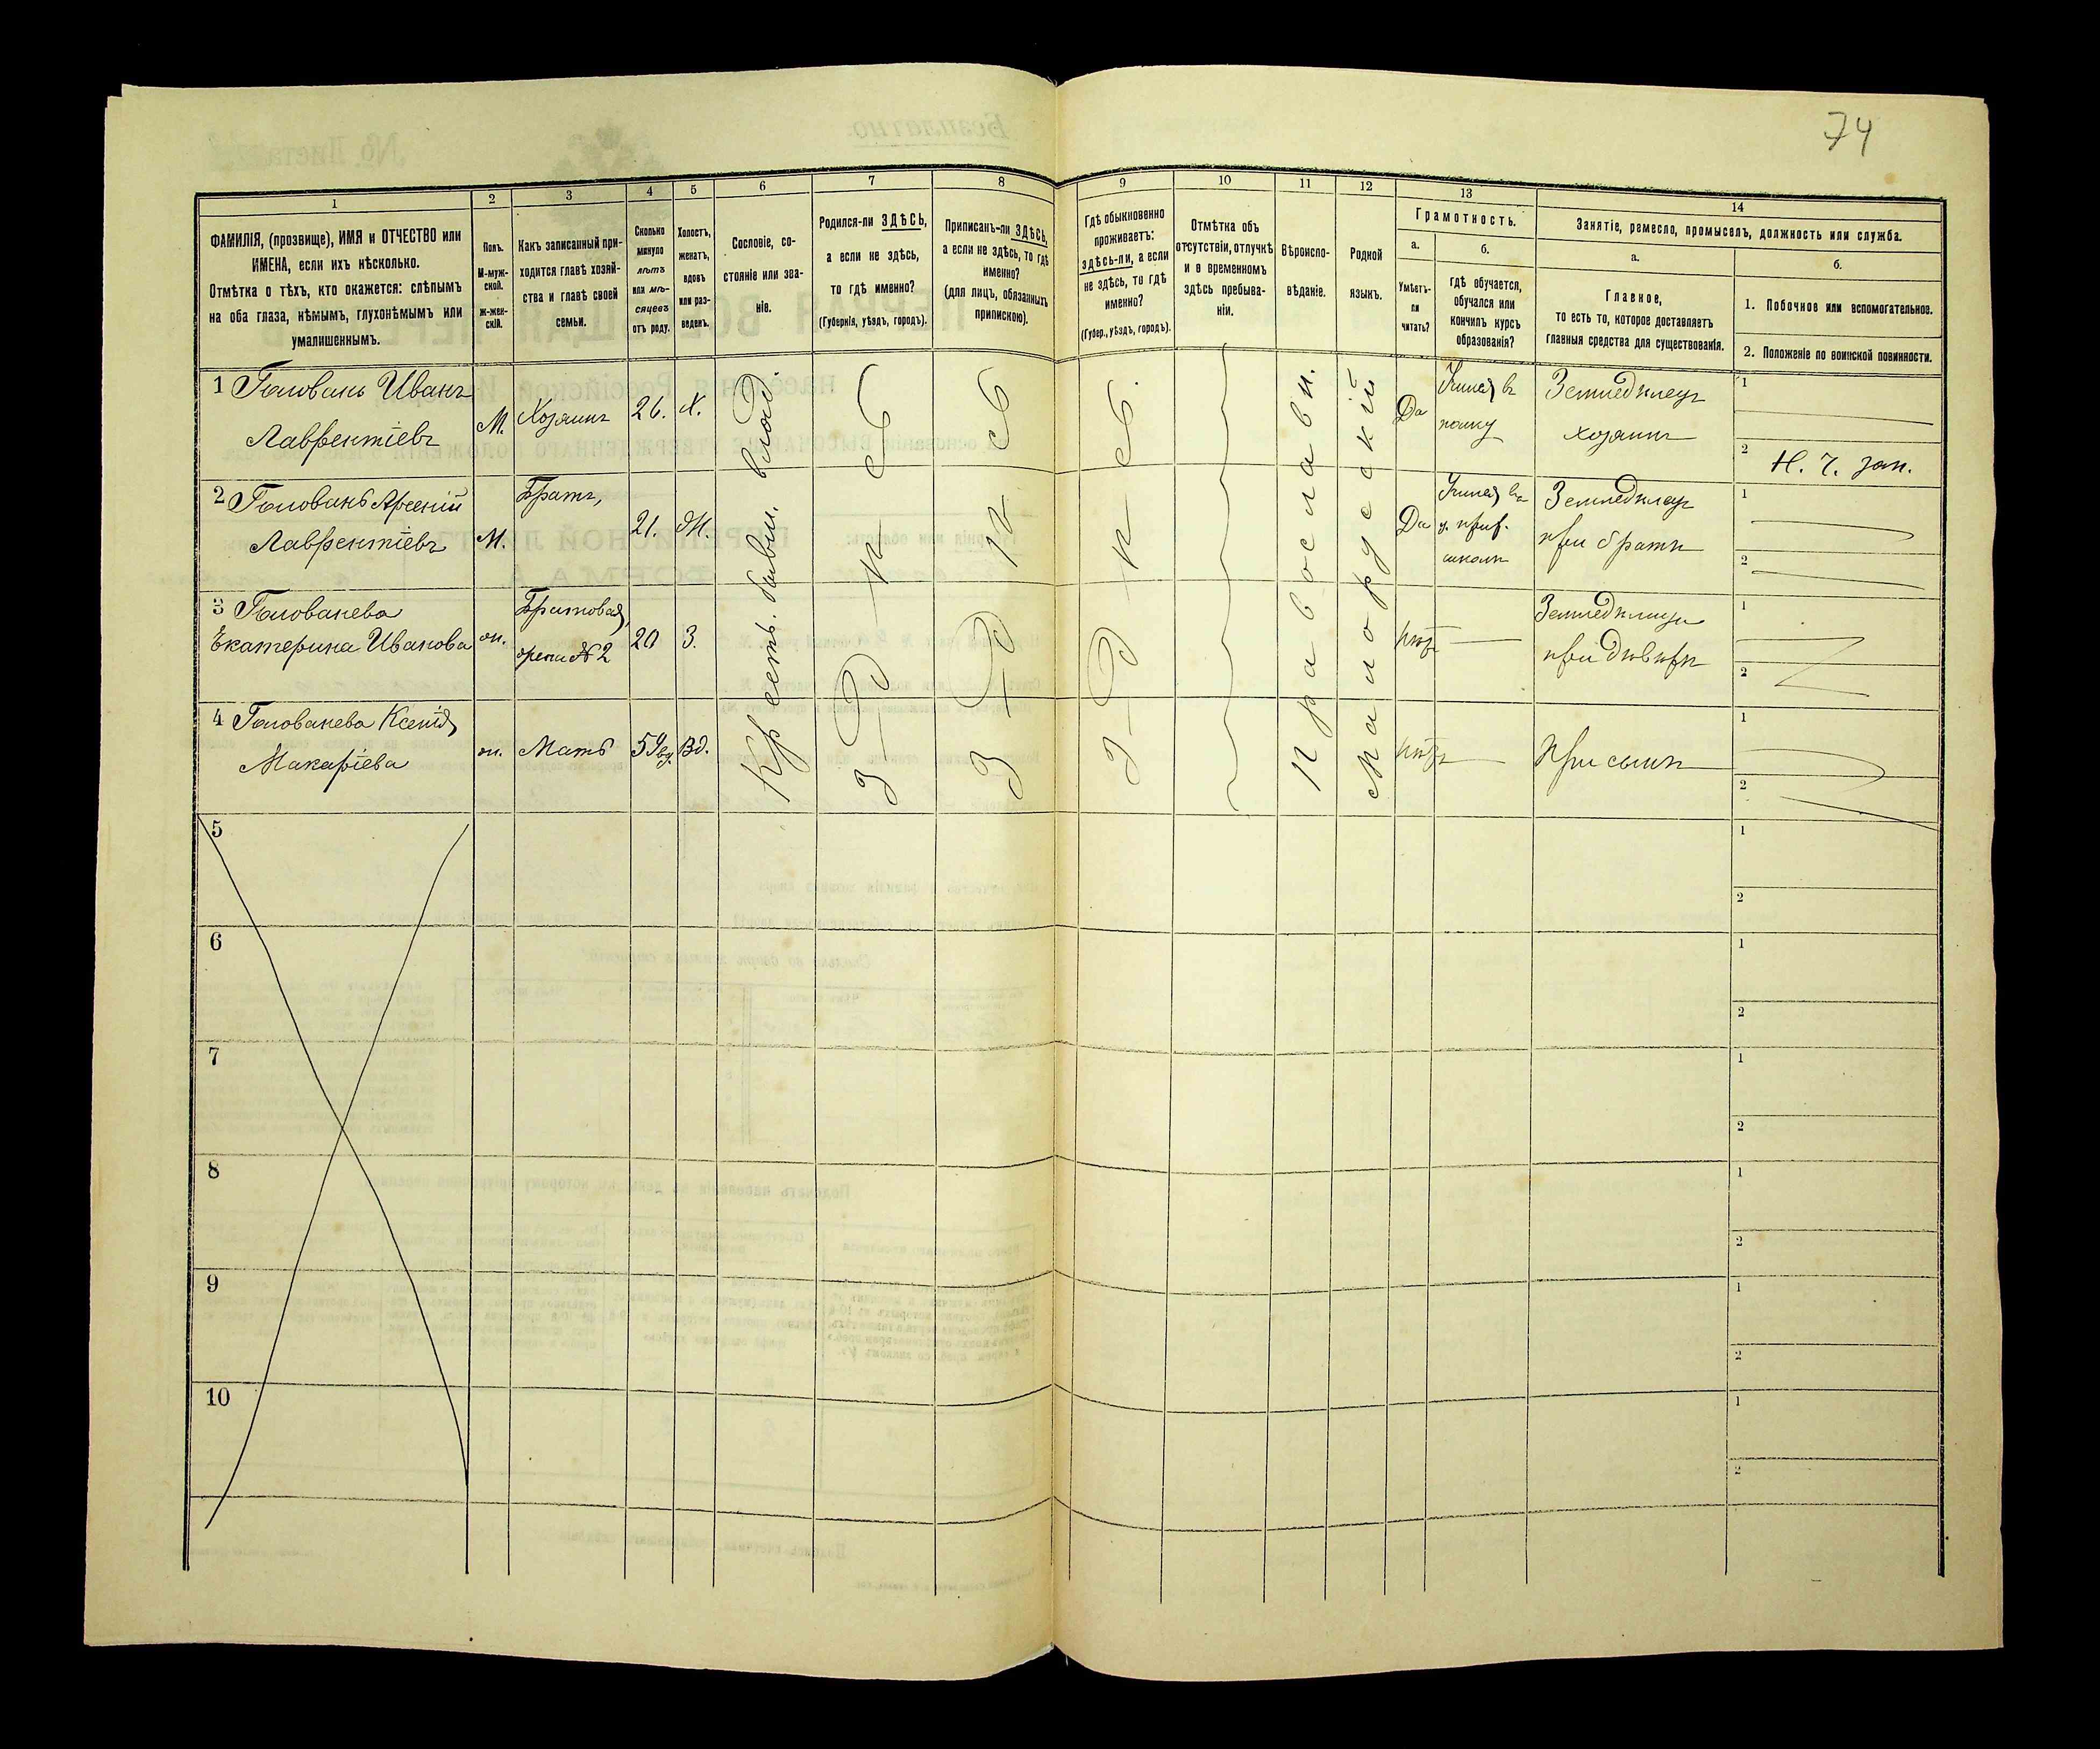 74
1
2
3
4
5
6
7
8
9
10
11
12
13
14
ФАМИЛІЯ, (прозвище), ИМЯ и ОТЧЕСТВО или
ИМЕНА, если ихъ нѣсколько.
Отмѣтка о тѣхъ, кто окажется: слѣпымъ
на оба глаза, нѣмымъ, глухонѣмымъ или
умалишеннымъ.
Полъ.
М-муж-
ской.
Ж-жен-
скій.
Какъ записанный при-
ходится главѣ хозяй-
ства и главѣ своей
семьи.
Сколько
минуло
лѣтъ
или мѣ-
сяцевъ
отъ роду.
Холостъ,
женатъ,
вдовъ
или раз-
веденъ.
Сословіе, со-
стояніе или зва-
ніе.
Родился-ли ЗДѢСЬ,
а если не здѣсь,
то гдѣ именно?
(Губернія, уѣздъ, городъ).
Приписанъ-ли ЗДѢСЬ,
а если не здѣсь, то гдѣ
именно?
(для лицъ, обязанныхъ
припискою).
Гдѣ обыкновенно
проживаетъ:
здѣсь-ли, а если
не здѣсь, то гдѣ
именно?
(Губер., уѣздъ, городъ).
Отмѣтка объ
отсутствіи, отлучкѣ
и о временномъ
здѣсь пребыва-
ніи.
Вѣроиспо-
вѣданіе.
Родной
языкъ.
Грамотность.
а.
Умѣетъ-
ли
читать?
б.
гдѣ обучается,
обучался или
кончилъ курсъ
образованія?
Занятіе, ремесло, промыселъ, должность или служба.
а.
Главное,
то есть то, которое доставляетъ
главныя средства для существованія.
б.
1. Побочное или вспомогательное.
2. Положеніе по воинской повинности.
1 Головань Иванъ
Лаврентіевъ
М.
Хозяинъ
26.
Х.
Крестъ. бывш. влад.
здѣсь
здѣсь
здѣсь.
Православн.
Малорусскій
Да
Земледѣлецъ
хозяинъ
1
2 Н. Ч. зап.
2 Головань Арсеній
Лаврентіевъ
М.
Братъ,
21.
Ж.
Да
школѣ
Земледѣлец
при братѣ
1
2
3 Голованева
Екатерина Иванова
ж.
Братовая,
жена № 2
20
З.
нѣтъ
при деверѣ
1
2
4 Голованева Ксенія
Макаріева
ж.
Мать
Вд.
нѣтъ
При сынѣ
1
2
5
1
2
6
1
2
7
1
2
8
1
2
9
1
2
10
1
2